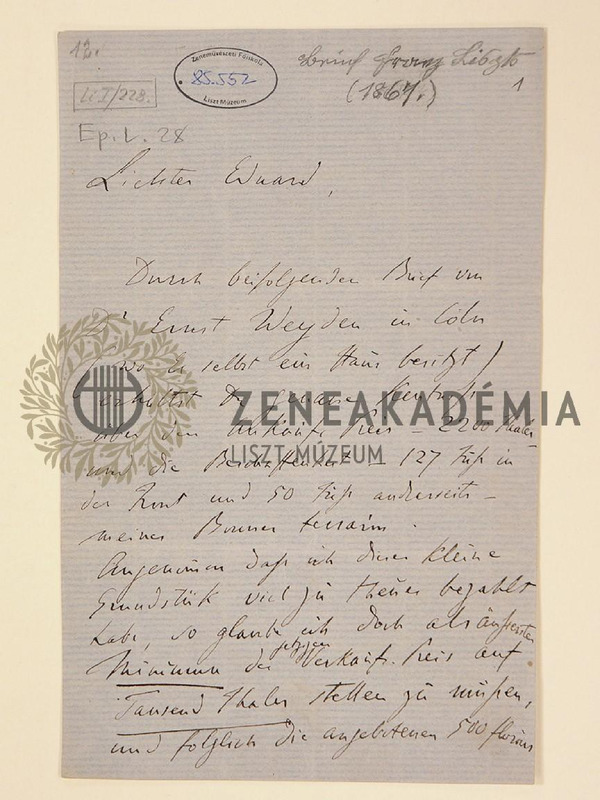 12.
Zeneművészeti Főiskola
85.552
Liszt Múzeum
Brief Franz Liszts
(1867.)
1
Li I/228.
Ep. L. 28
Liebster Eduard,
Durch beifolgenden Brief von
Dr Ernst Weyden in Cöln
(wo Er selbst ein Haus besitzt)
erhältst Du genaue
über den Ankaufs Preis – 2200 Thaler –
und die Beschaffenheit – 127 Fuß in
der Front und 50 Fuß anderseits –
meines Bonner terrains.
Angenommen daß ich dieses kleine
Grundstück viel zu theuer bezahlt
habe, so glaube ich doch als äußersten
Minimum den jetzigen Verkaufs-Preis auf
Tausend Thaler stellen zu müßen,
und folglich die angebotenen 500 florins
ZENEAKADÉMIA
LISZT MÚZEUM